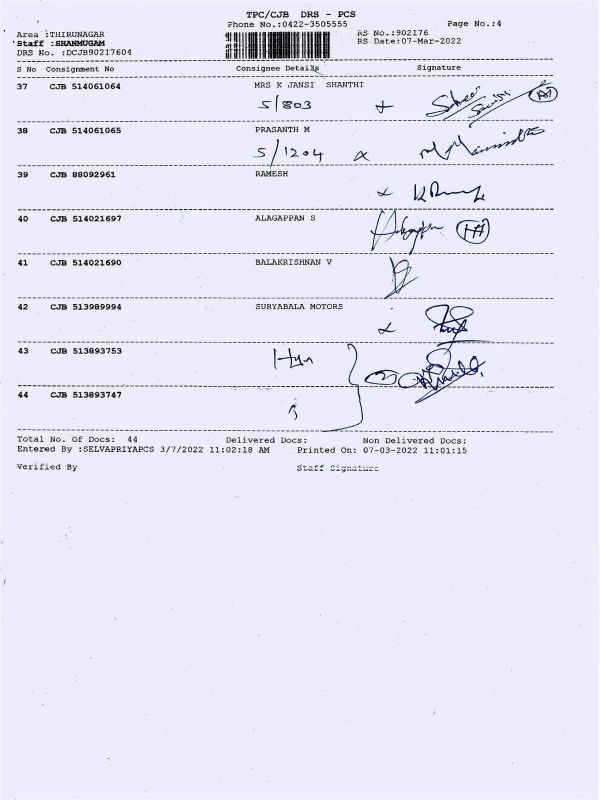 TPC/CJB DRS - PCS
Phone No.:0422-3505555 Page No.:4
Area :THIRUNAGAR RS No.:902176
Staff :SHANMUGAM RS Date:07-Mar-2022
DRS No. :DCJB90217604
S No Consignment No Consignee Details Signature
37 CJB 514061064 MRS K JANSI SHANTHI
5/803
38 CJB 514061065 PRASANTH M
5/1204
39 CJB 88092961 RAMESH
40 CJB 514021697 ALAGAPPAN S
41 CJB 514021690 BALAKRISHNAN V
42 CJB 513989994 SURYABALA MOTORS
43 CJB 513893753
44 CJB 513893747
Total No. Of Docs: 44 Delivered Docs: Non Delivered Docs:
Entered By :SELVAPRIYAPCS 3/7/2022 11:02:18 AM Printed On: 07-03-2022 11:01:15
Verified By Staff Signature